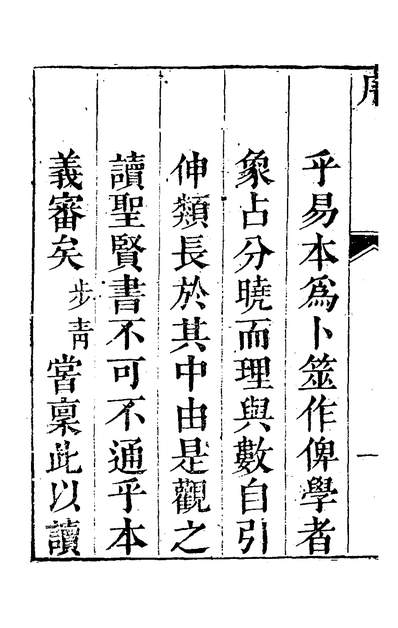 序
乎易本爲卜筮作俾學者
象占分曉而理與數自引
伸類長於其中由是觀之
讀聖賢書不可不通乎本
義審矣步青嘗稟此以讀
一